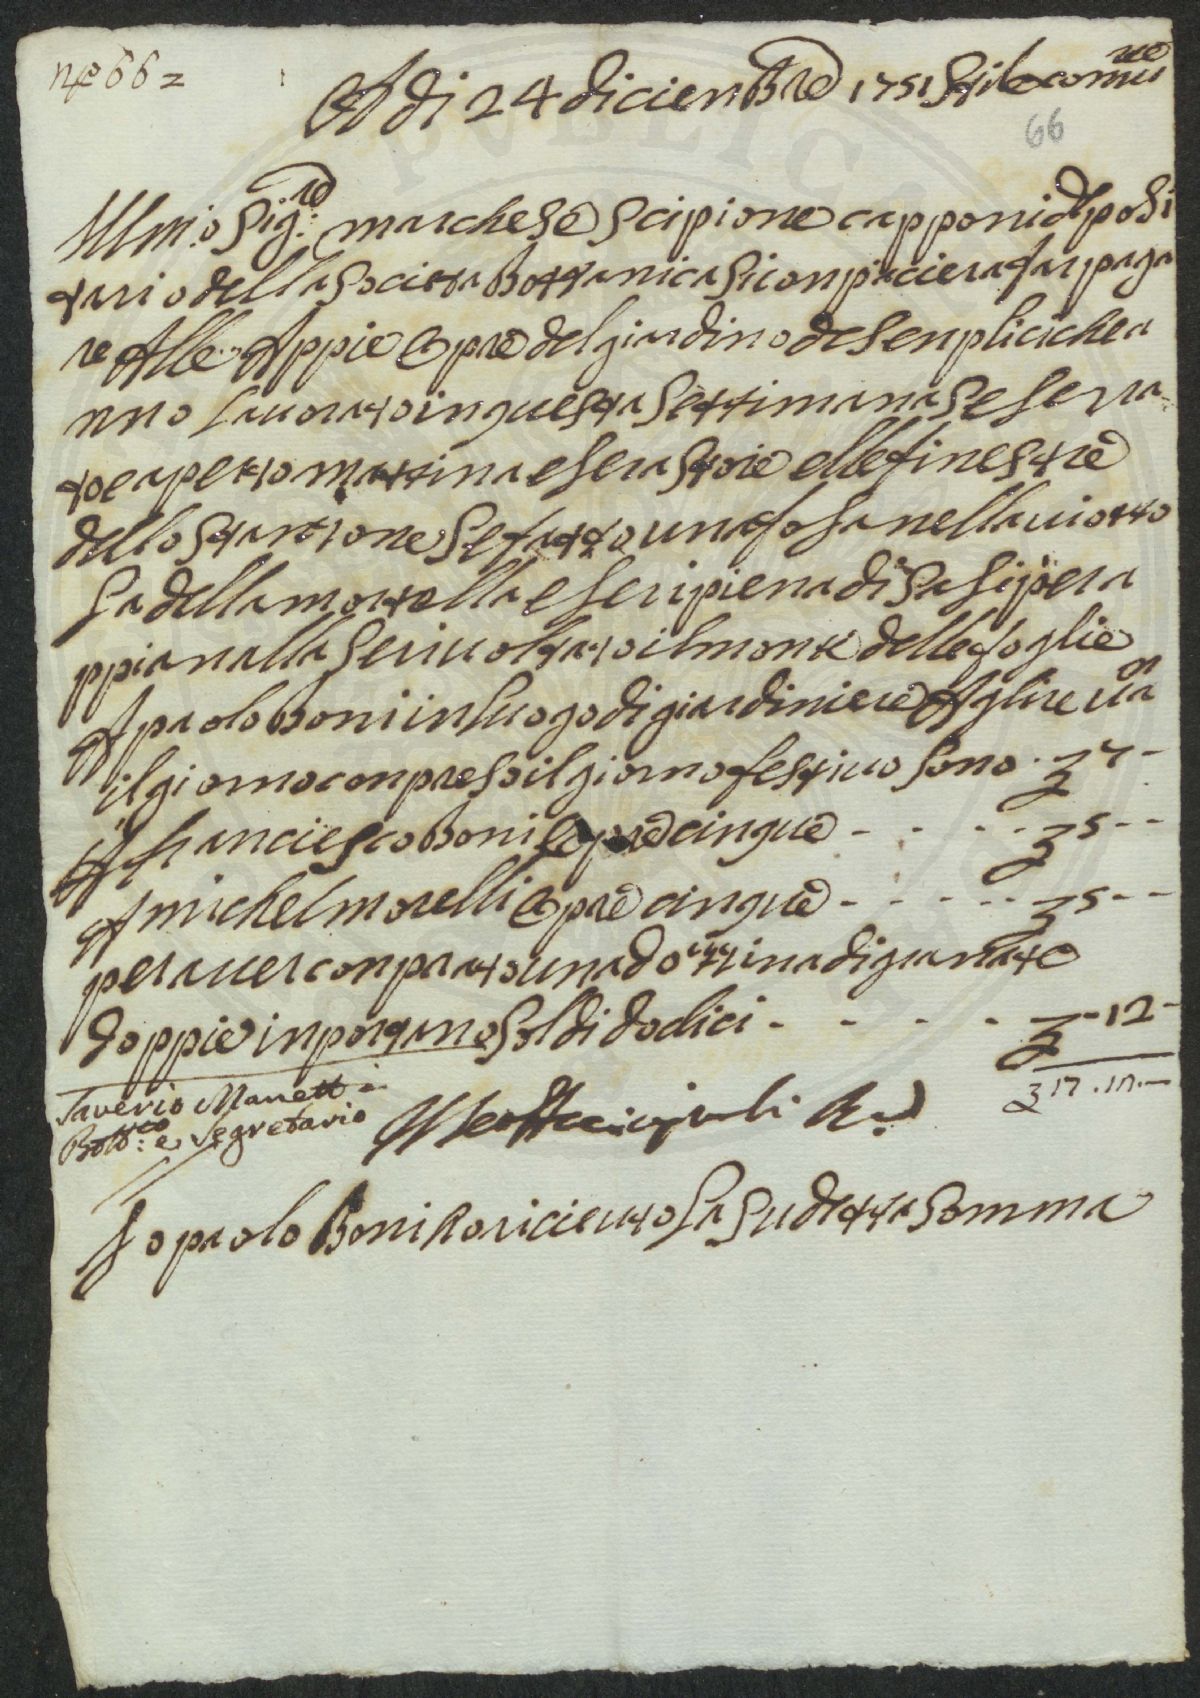 n° 66=
A di 24 dicienbre 1751 Stile comune
66
Illmo Sigre marchese Scipione capponi deposi
tario della Societta Bottanica Si conpiaciera far paga
re Alle Appie Opre del giardino de Senplici che a
nno Lauorato in questa Settimana Se Serra
to e aperto mattina e Sera Stoie e lle finestre
dello Stantione Se fatto una fosa nella uiotto
La della mortella e Se ripiena di Sasi per a
ppianalla Se riuoltato il monte delle foglie
A paolo Boni in luogo di giardiniere A lire una
il giorno conpreso il giorno festiuo sono . £ 7 -
A franciesco Boni Opre cinque - - - - £ 5 - -
A michel morelli Opre cinque - - - - - £ 5 - -
per auer conprato una dozzina di granate
doppie inportano Soldi dodici - - - - - £ - 12 -
£ 17 . 12 . -
Saverio Manetti
Bottco: e Segretario
Io paolo Boni Ro riceuto La Sudetta Somma